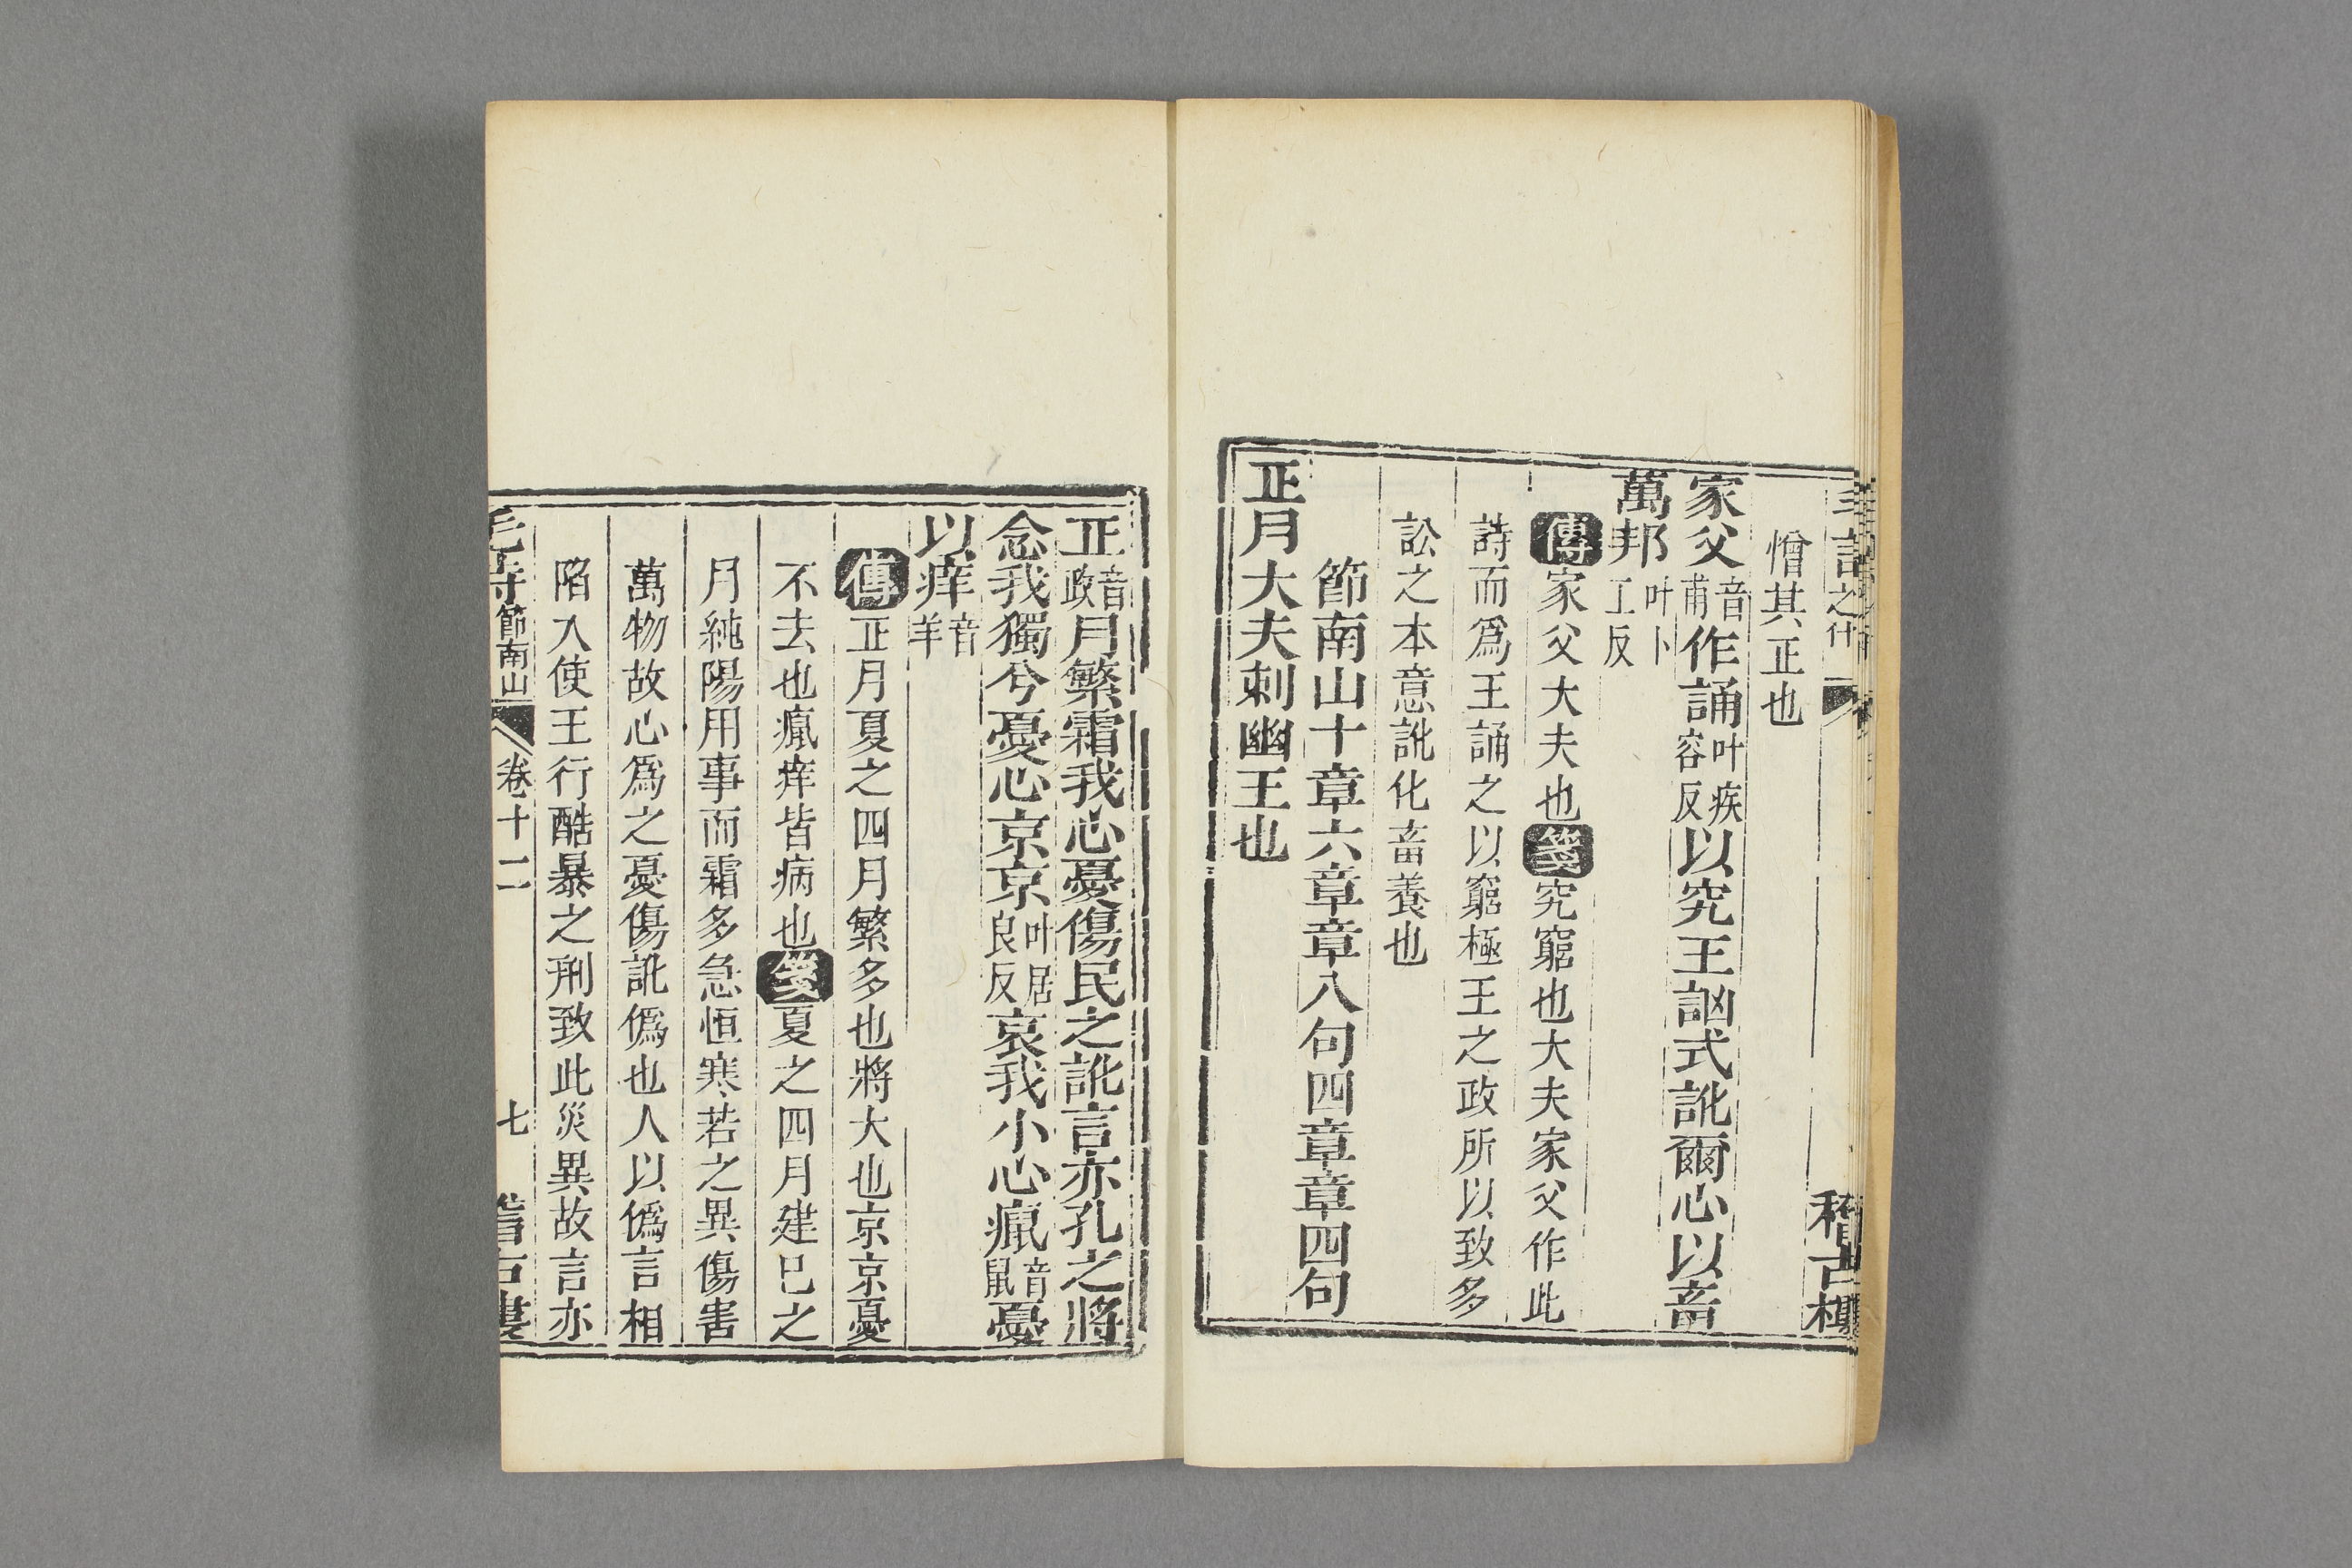 憎其正也
家父音甫作誦叶疾容反以究王訩式訛爾心以畜
萬邦叶卜工反
傳家父大夫也箋究窮也大夫家父作此
詩而爲王誦之以窮極王之政所以致多
訟之本意訛化畜養也
節南山十章六章章八句四章章四句
正月大夫刺幽王也
稽古樓
正音政月繁霜我心憂傷民之訛言亦孔之將
念我獨兮憂心京京叶居良反哀我小心癙音鼠憂
以痒音羊
傳正月夏之四月繁多也將大也京京憂
不去也癙痒皆病也箋夏之四月建巳之
月純陽用事而霜多急恒寒若之異傷害
萬物故心爲之憂傷訛僞也人以僞言相
陷入使王行酷暴之刑致此災異故言亦
毛詩節南山 卷十二 七 稽古樓